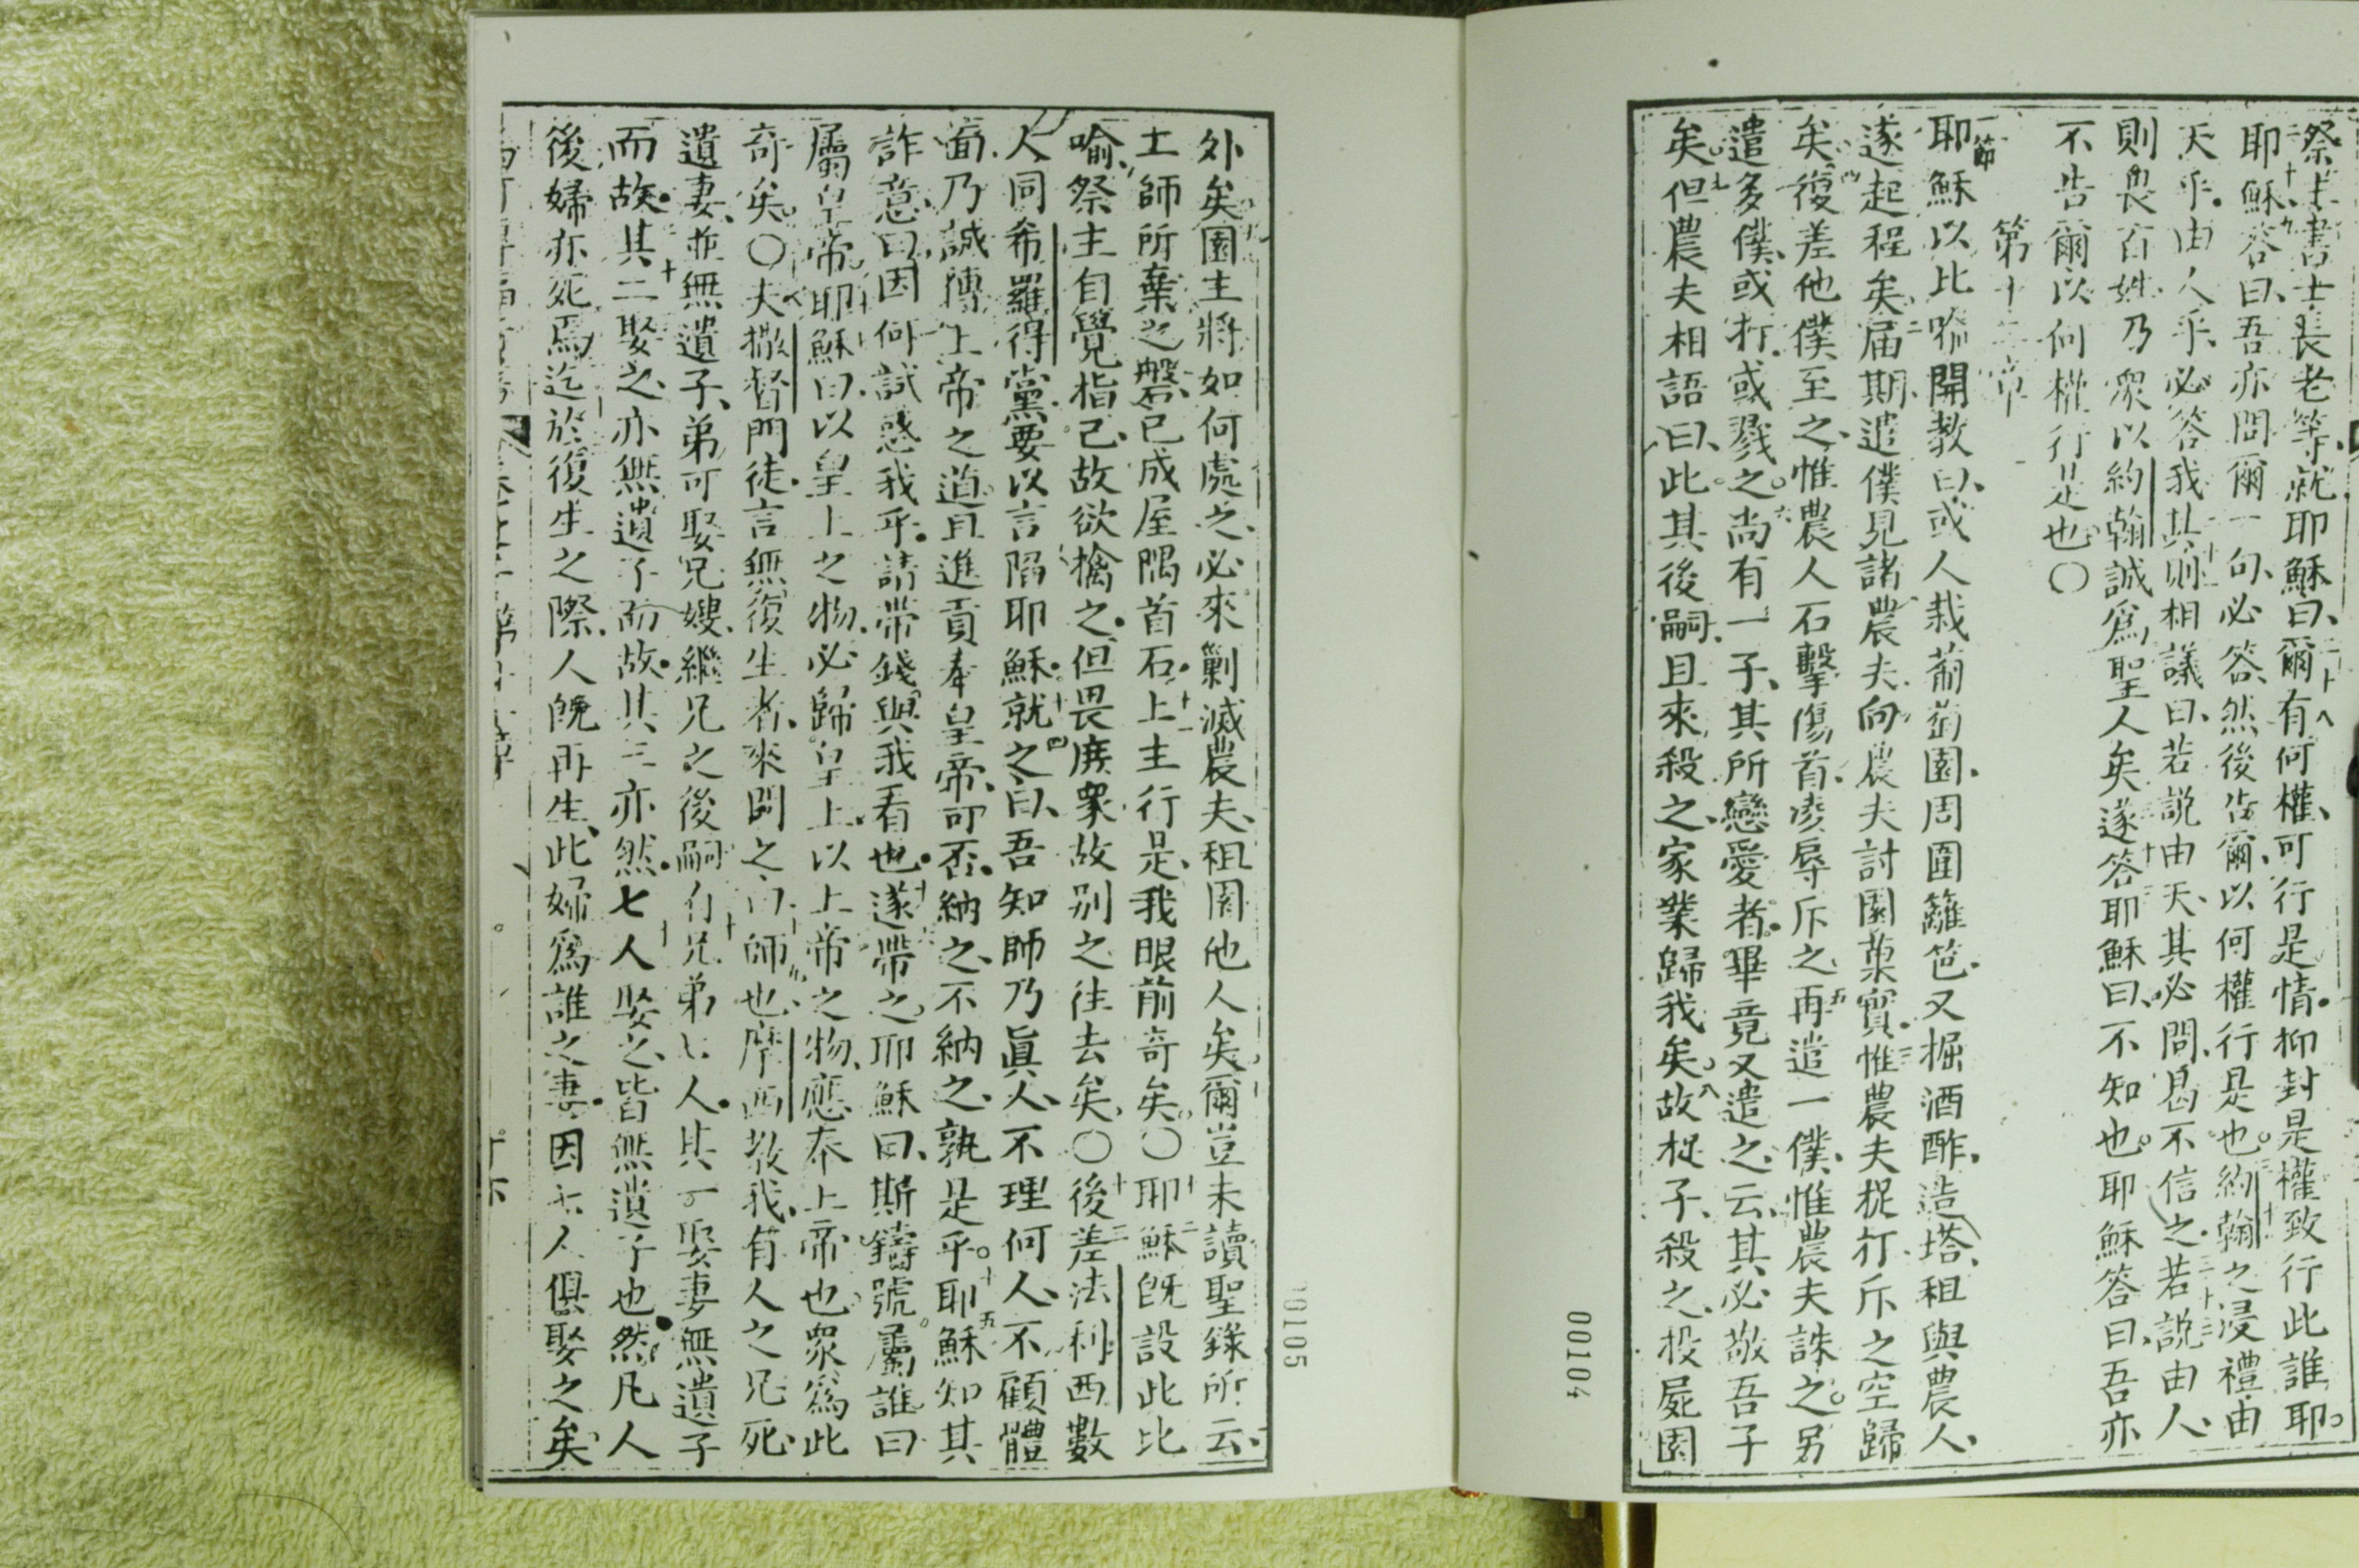 祭主書士長老等就耶穌曰爾有何權可行是情抑封是權致行此誰耶
耶穌答曰吾亦問爾一句必答然後告爾以何權行是也約翰之浸禮由
天乎由人乎必答我其則相議曰若説由天其必問曷不信之若説由人
則畏百姓乃衆以約翰誠為聖人矣遂答耶穌曰不知也耶穌答曰吾亦
不告爾以何權行是也〇
第十二章
一節
耶穌以比喻開教曰或人栽葡萄園周圍籬笆又掘酒酢造塔租與農人
遂起程矣届期遣僕見諸農夫向農夫討園菓實惟農夫捉打斥之空歸
矣復差他僕至之惟農人石擊傷首凌辱斥之再遣一僕惟農夫誅之另
遣多僕或打或戮之尚有一子其所戀愛者畢竟又遣之云其必敬吾子
矣但農夫相語曰此其後嗣且來殺之家業歸我矣故捉子殺之投屍園
00104
外矣園主將如何處之必來剿滅農夫租園他人矣爾豈未讀聖錄所云
工師所棄之磐已成屋隅首石上主行是我眼前奇矣〇耶穌既設此比
喻祭主自覺指己故欲擒之但畏庶衆故别之往去矣〇後差法利西數
人同希羅得黨要以言陷耶穌就之曰吾知師乃眞人不理何人不顧體
面乃誠傳上帝之道且進貢奉皇帝可否納之不納之孰是乎耶穌知其
詐意曰因何試惑我乎請帶錢與我看也遂帶之耶穌曰斯鑄號屬誰曰
屬皇帝耶穌曰以皇上之物必歸皇上以上帝之物應奉上帝也衆為此
奇矣〇夫撒督門徒言無復生者來問之曰師也摩西教我有人之兄死
遺妻並無遺子弟可娶兄嫂繼兄之後嗣有兄弟七人其一娶妻無遺子
而故其二娶之亦無遺子而故其三亦然七人娶之皆無遺子也然凡人
後婦亦死焉迄於復生之際人既再生此婦為誰之妻因七人俱娶之矣
00105